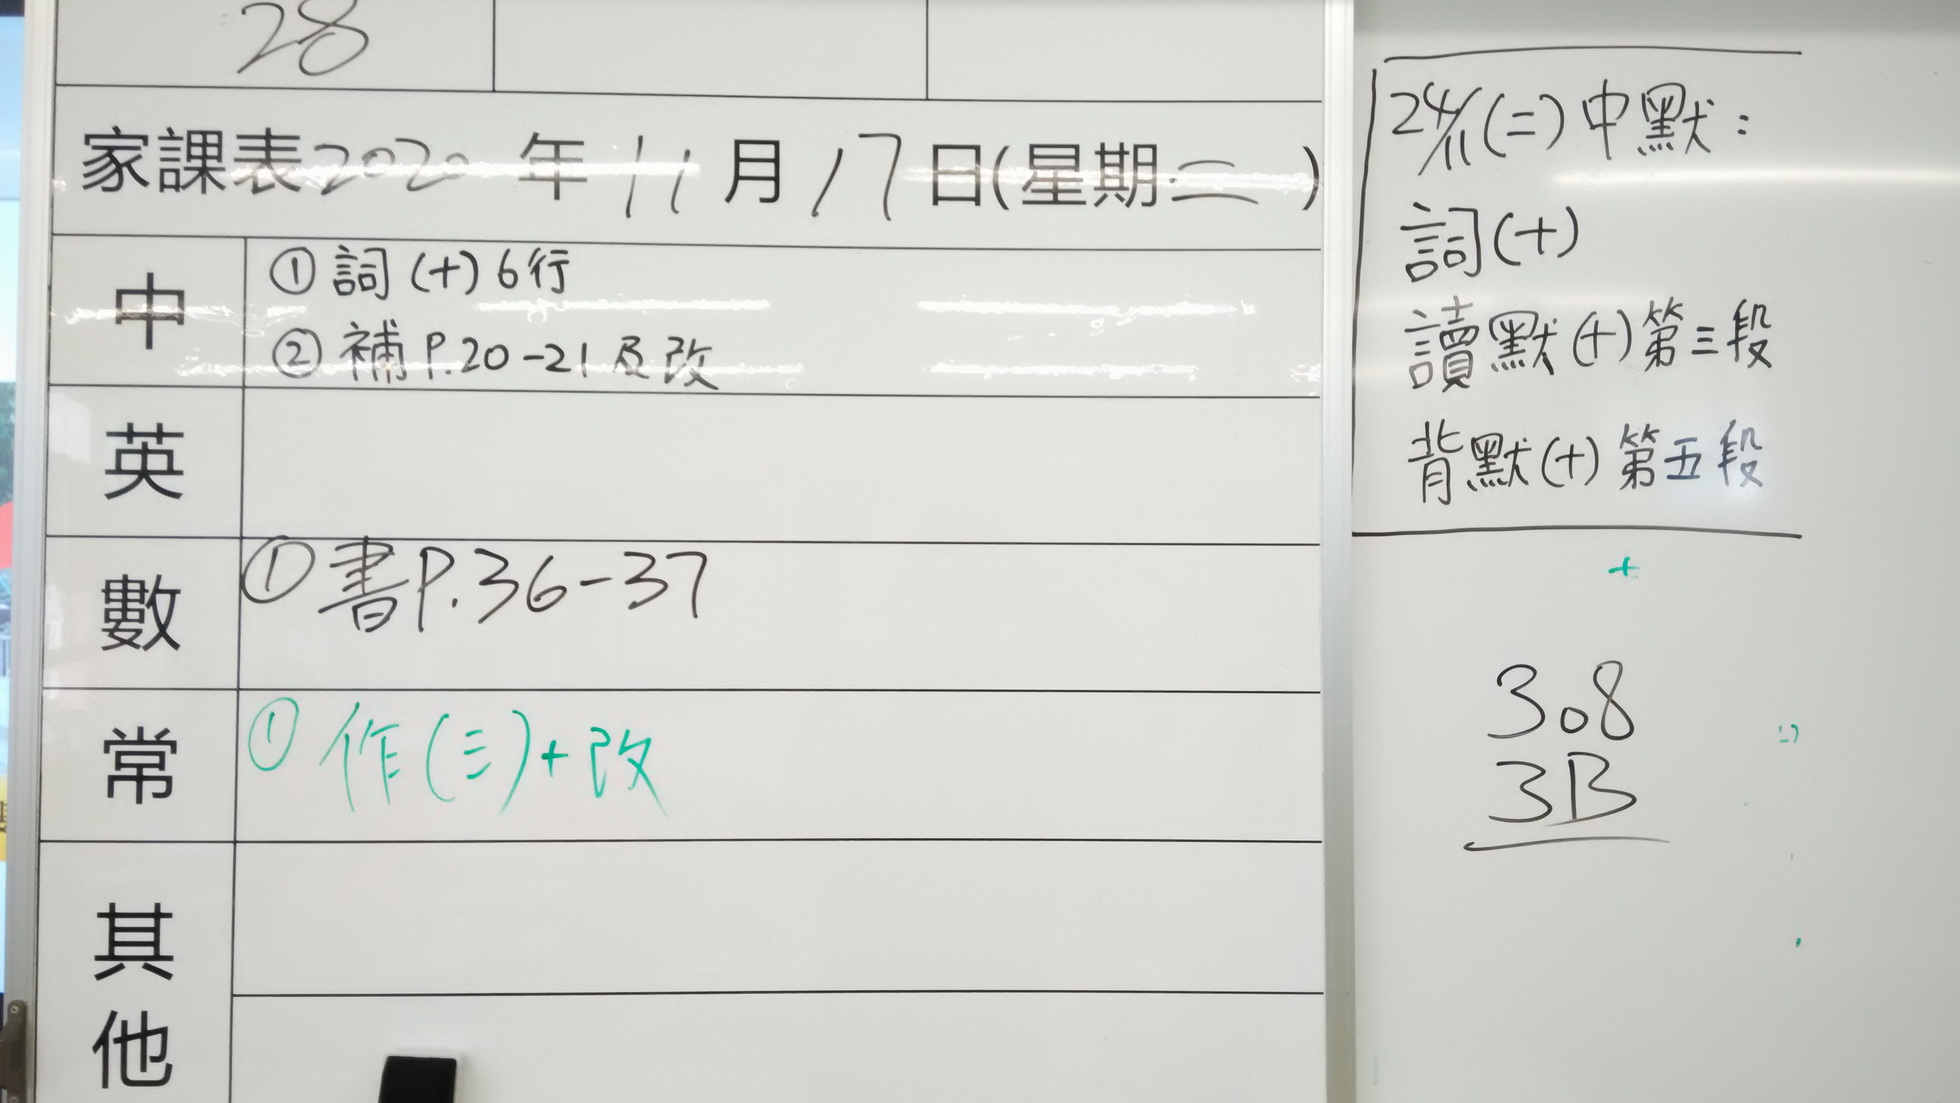 28
家課表2020年11月17日(星期二)
中
①詞(十)6行
②補P.20-21及改
英
數
①書P.36-37
常
①作(三)+改
其他
24/11(二)中默:
詞(十)
讀默(十)第三段
背默(十)第五段
+
308
3B